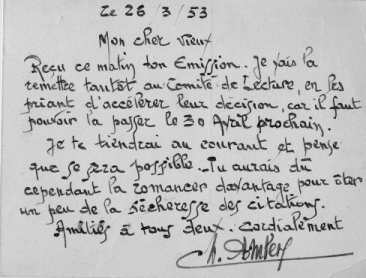 Le 26 / 3 / 53
Mon cher vieux
Reçu ce matin ton Emission. Je vais la
remettre tantôt au Comité de Lecture, en les
priant d'accélérer leur décision, car il faut
pouvoir la passer le 30 Avril prochain.
Je te tiendrai au courant et pense
que ce sera possible. Tu aurais dû
cependant la romancer davantage pour ôter
un peu de la sécheresse des citations.
Amitiés à tous deux. Cordialement